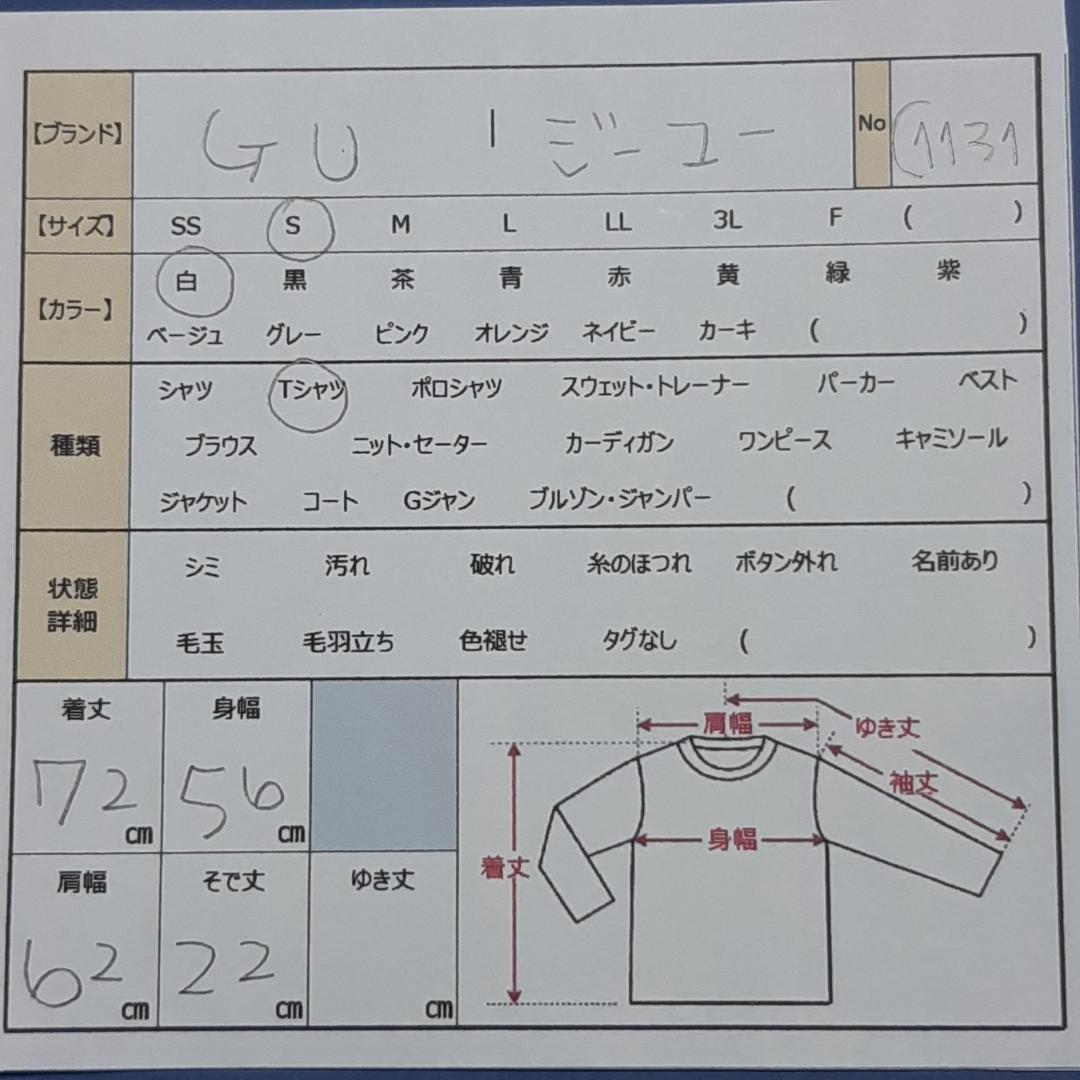 【ブランド】 GU | ジーユー No (1131
【サイズ】 SS S M L LL 3L F ( )
【カラー】 白 黒 茶 青 赤 黄 緑 紫
ベージュ グレー ピンク オレンジ ネイビー カーキ ( )
種類 シャツ Tシャツ ポロシャツ スウェット・トレーナー パーカー ベスト
ブラウス ニット・セーター カーディガン ワンピース キャミソール
ジャケット コート Gジャン ブルゾン・ジャンパー ( )
状態
詳細
シミ 汚れ 破れ 糸のほつれ ボタン外れ 名前あり
毛玉 毛羽立ち 色褪せ タグなし ( )
着丈 身幅
72cm 56cm
肩幅 そで丈 ゆき丈
62cm 22cm cm
肩幅
ゆき丈
袖丈
身幅
着丈